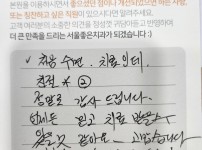 본원을 이용하시면서 좋으셨던 점이나 개선되었으면 하는 사항,
또는 칭찬하고 싶은 직원이 있으시다면 알려주세요.
고객 여러분의 소중한 의견을 정성껏 귀담아들고 반영하여
더 큰 만족을 드리는 서울좋은치과가 되겠습니다 :)
처음 수면 치료인데
친절 * ②
정말로 감사 드립니다.
믿고 치료 받을수
있을것 같아요 고맙습니다